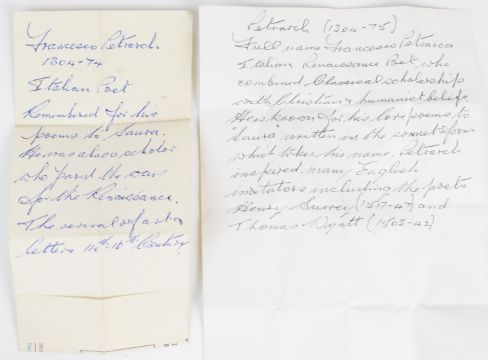 Francesco Petrarch
1304-74
Italian Poet
Remembered for his
poems to Laura.
He was also a scholar
who paved the way
for the Renaissance.
The revival of art &
letters 14th-16th Century
318
Petrarch (1304-75)
Full name Francesco Petrarca
Italian Renaissance Poet, who
combined Classical scholarship
with Christian & humanist beliefs
He is known for his love poems to
"Laura written in the sonnet form
which takes his name. Petrarch
inspired many English
imitators including the poets
Henry Surrey (1517-47) and
Thomas Wyatt (1503-42)